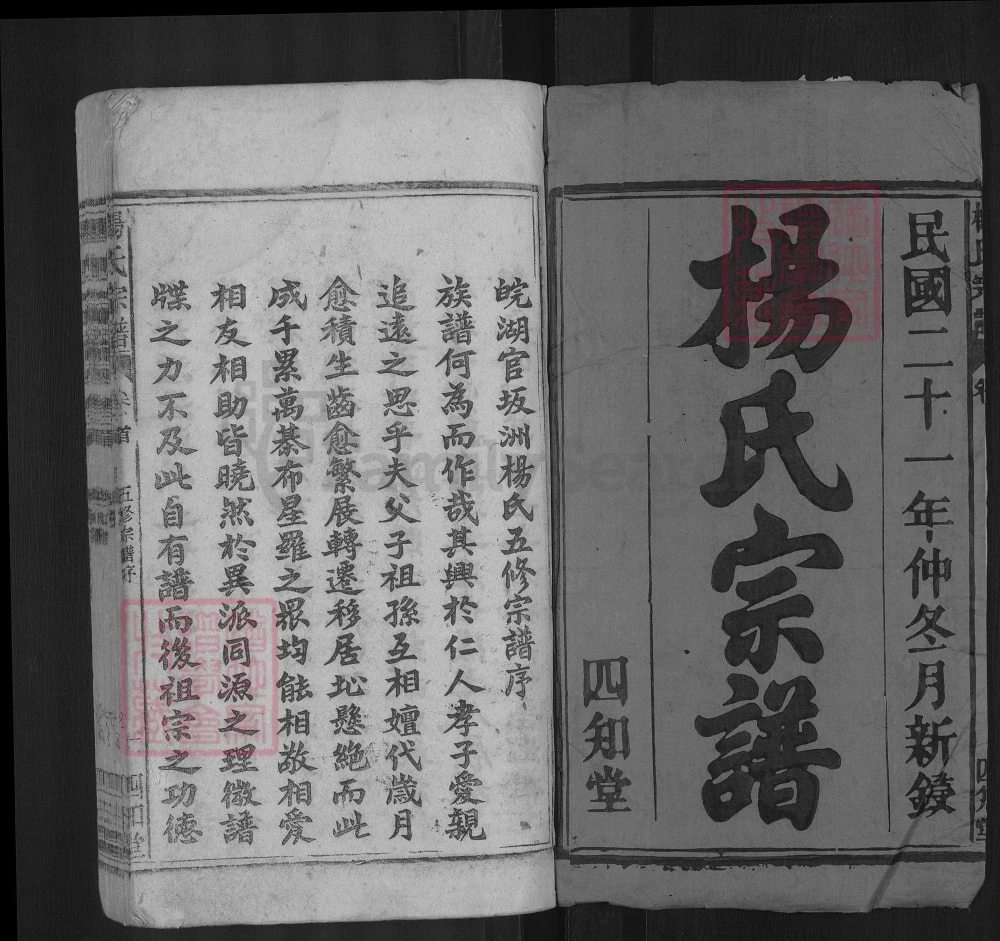 民國二十一年仲冬月新鐫
楊氏宗譜
四知堂
皖湖官坂洲楊氏五修宗譜序
族譜何為而作哉其興於仁人孝子愛親
追遠之思乎夫父子祖孫互相嬗代歲月
愈積生齒愈繁展轉遷移居址懸絕而此
成千累萬棊布星羅之眾均能相敬相愛
相友相助皆曉然於異派同源之理微譜
牒之力不及此自有譜而後祖宗之功德
楊氏宗譜 卷首 五修宗譜序 一 四知堂